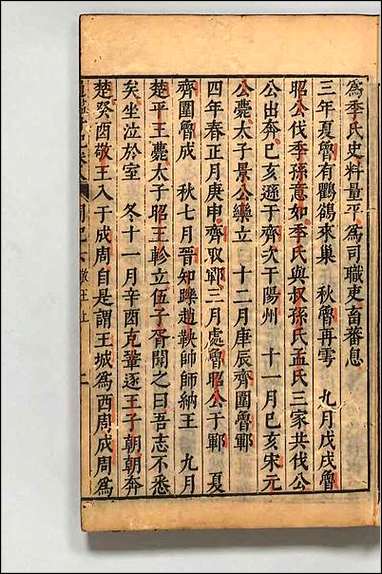 爲季氏史料量平爲司職吏畜蕃息
三年夏魯有鸜鵒來巢　秋魯再雩　九月戊戌魯
昭公伐季孫意如季氏與叔孫氏孟氏三家共伐公
公出奔己亥遜于齊次于陽州　十一月己亥宋元
公薨太子景公欒立　十二月庚辰齊圍魯鄆
四年春正月庚申齊取鄆三月處魯昭公于鄆　夏
齊圍魯成　秋七月晉知躒趙鞅師師納王　九月
楚平王薨太子昭王軫立伍子胥聞之曰吾志不悉
矣坐泣於室　冬十一月辛酉克鞏逐王子朝朝奔
楚癸酉敬王入于成周自是謂王城爲西周成周爲
周紀六　敬王上　二